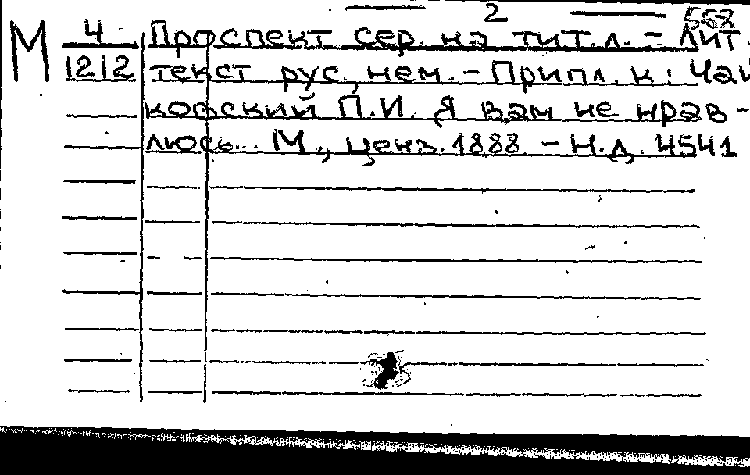 2 558
М 4 Проспект сер. на тит.л. - Лит.
1212 текст рус., нем. - Припл. к: Чай
ковский П.И. Я вам не нрав-
люсь.. М., ценз. 1888. - Н.д. 4541